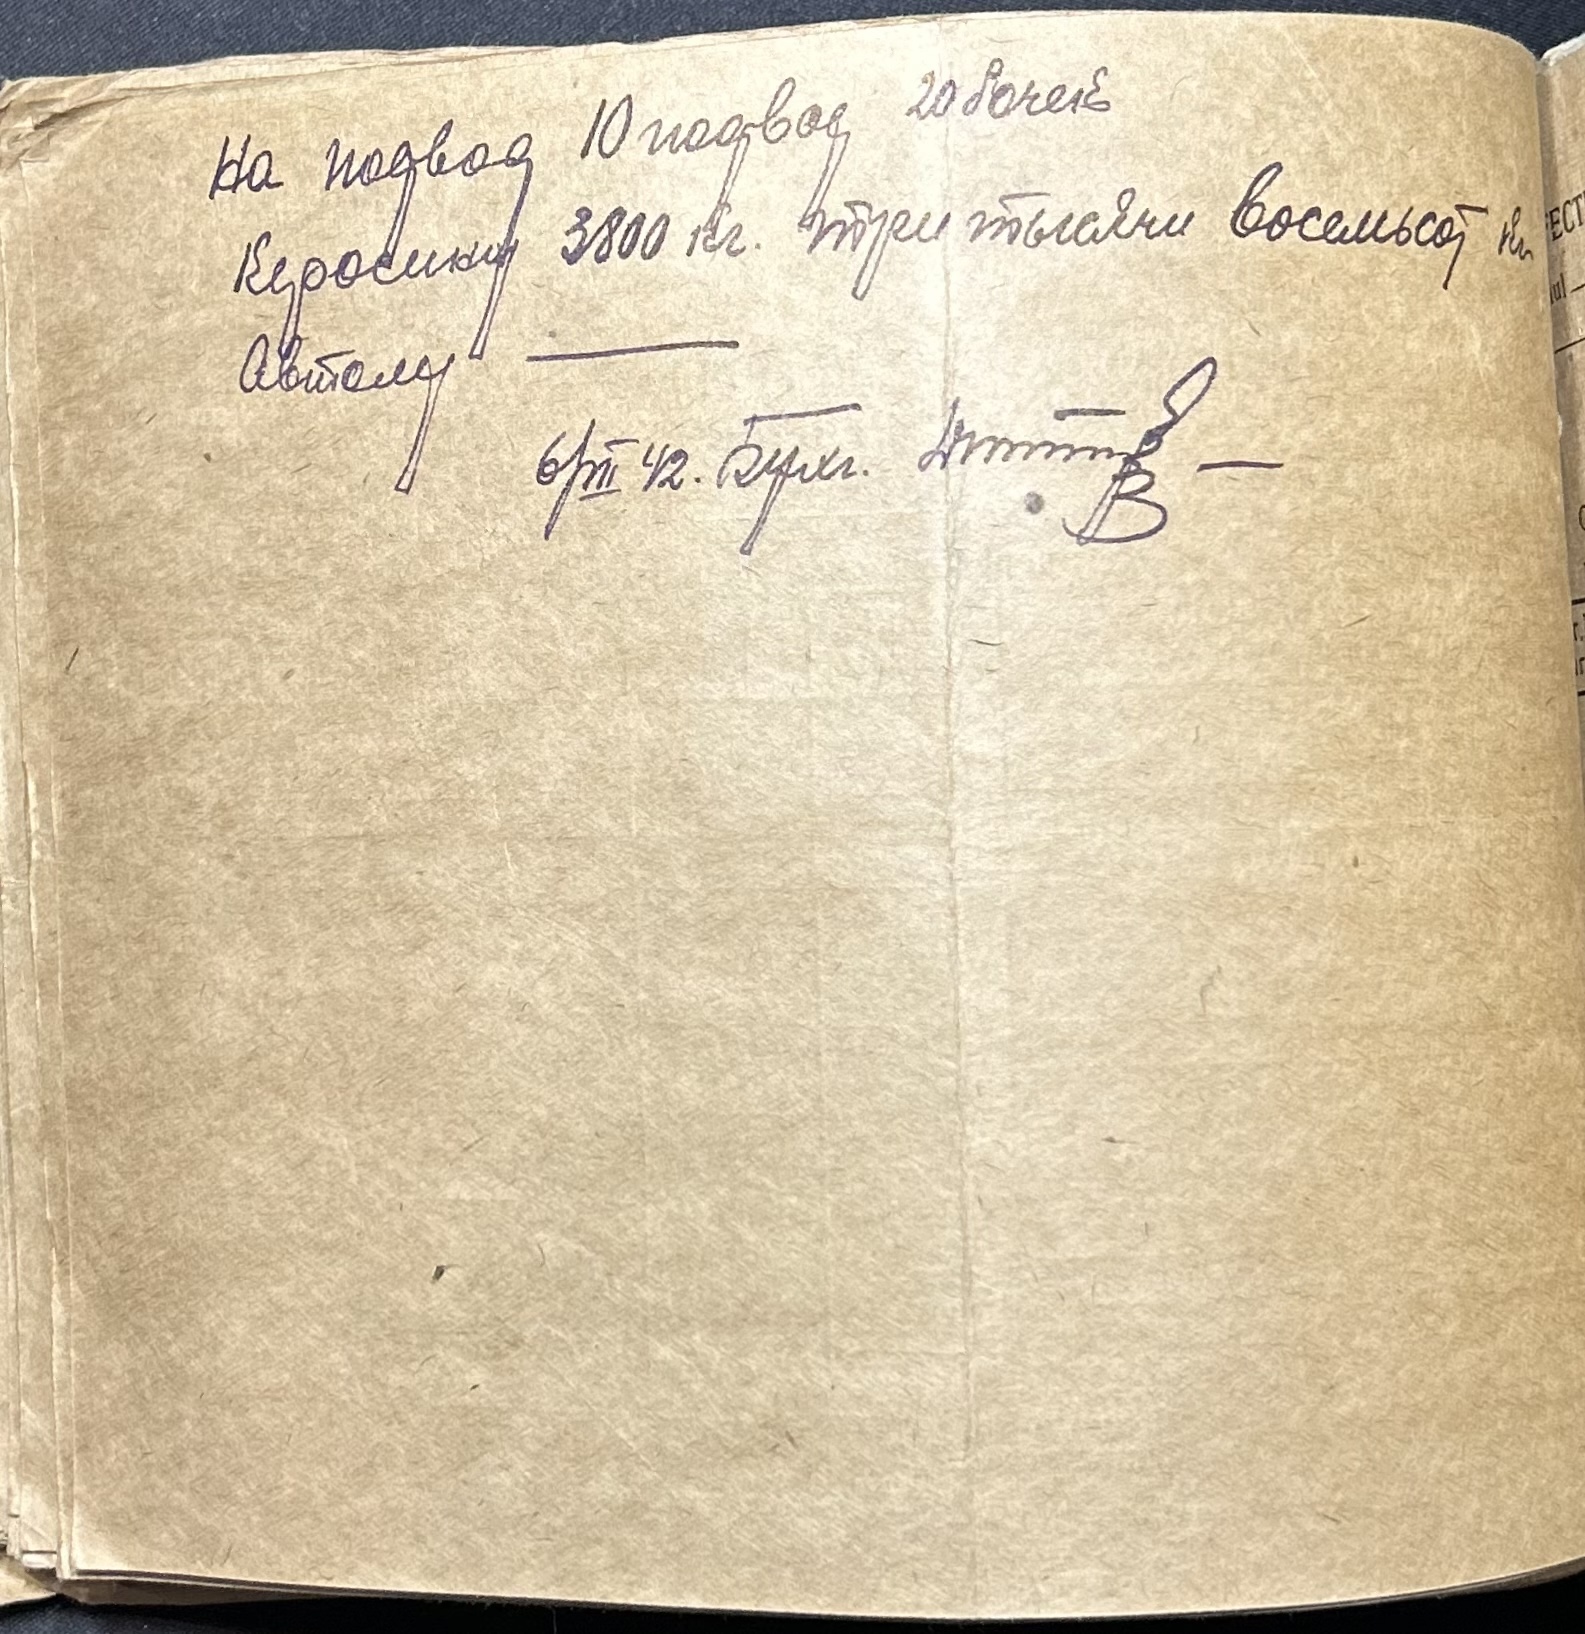 На подвод 10 подвод 20 бочек
Керосину 3800 кг. три тысячи восемьсот кг
Автолу —
6/III 42. Бухг.